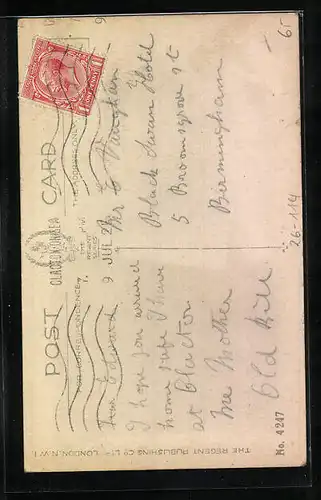 POST CARD
FOR CORRESPONDENCE
THE ADDRESS ONLY
CLACTON ON SEA
9 JUL
Dear Edward
I hope you arrived
home safe I have
at Clacton
Mother
Old Hill
Mr E Vaughan
Black Swan Hotel
5 Bromsgrove St
Birmingham
26-114
65
THE REGENT PUBLISHING Co LTD LONDON, N.W.1.
No. 4247